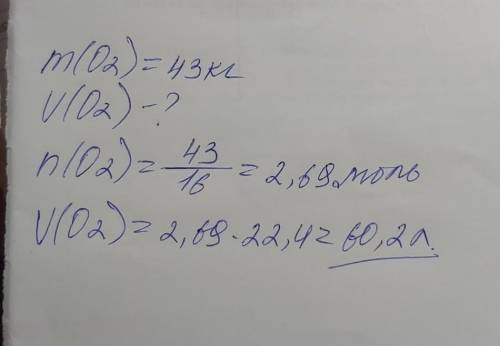 m(O2) = 43кг
V(O2) - ?
n(O2) = 43/16 = 2,69 моль
V(O2) = 2,69 · 22,4 = 60,2 л.